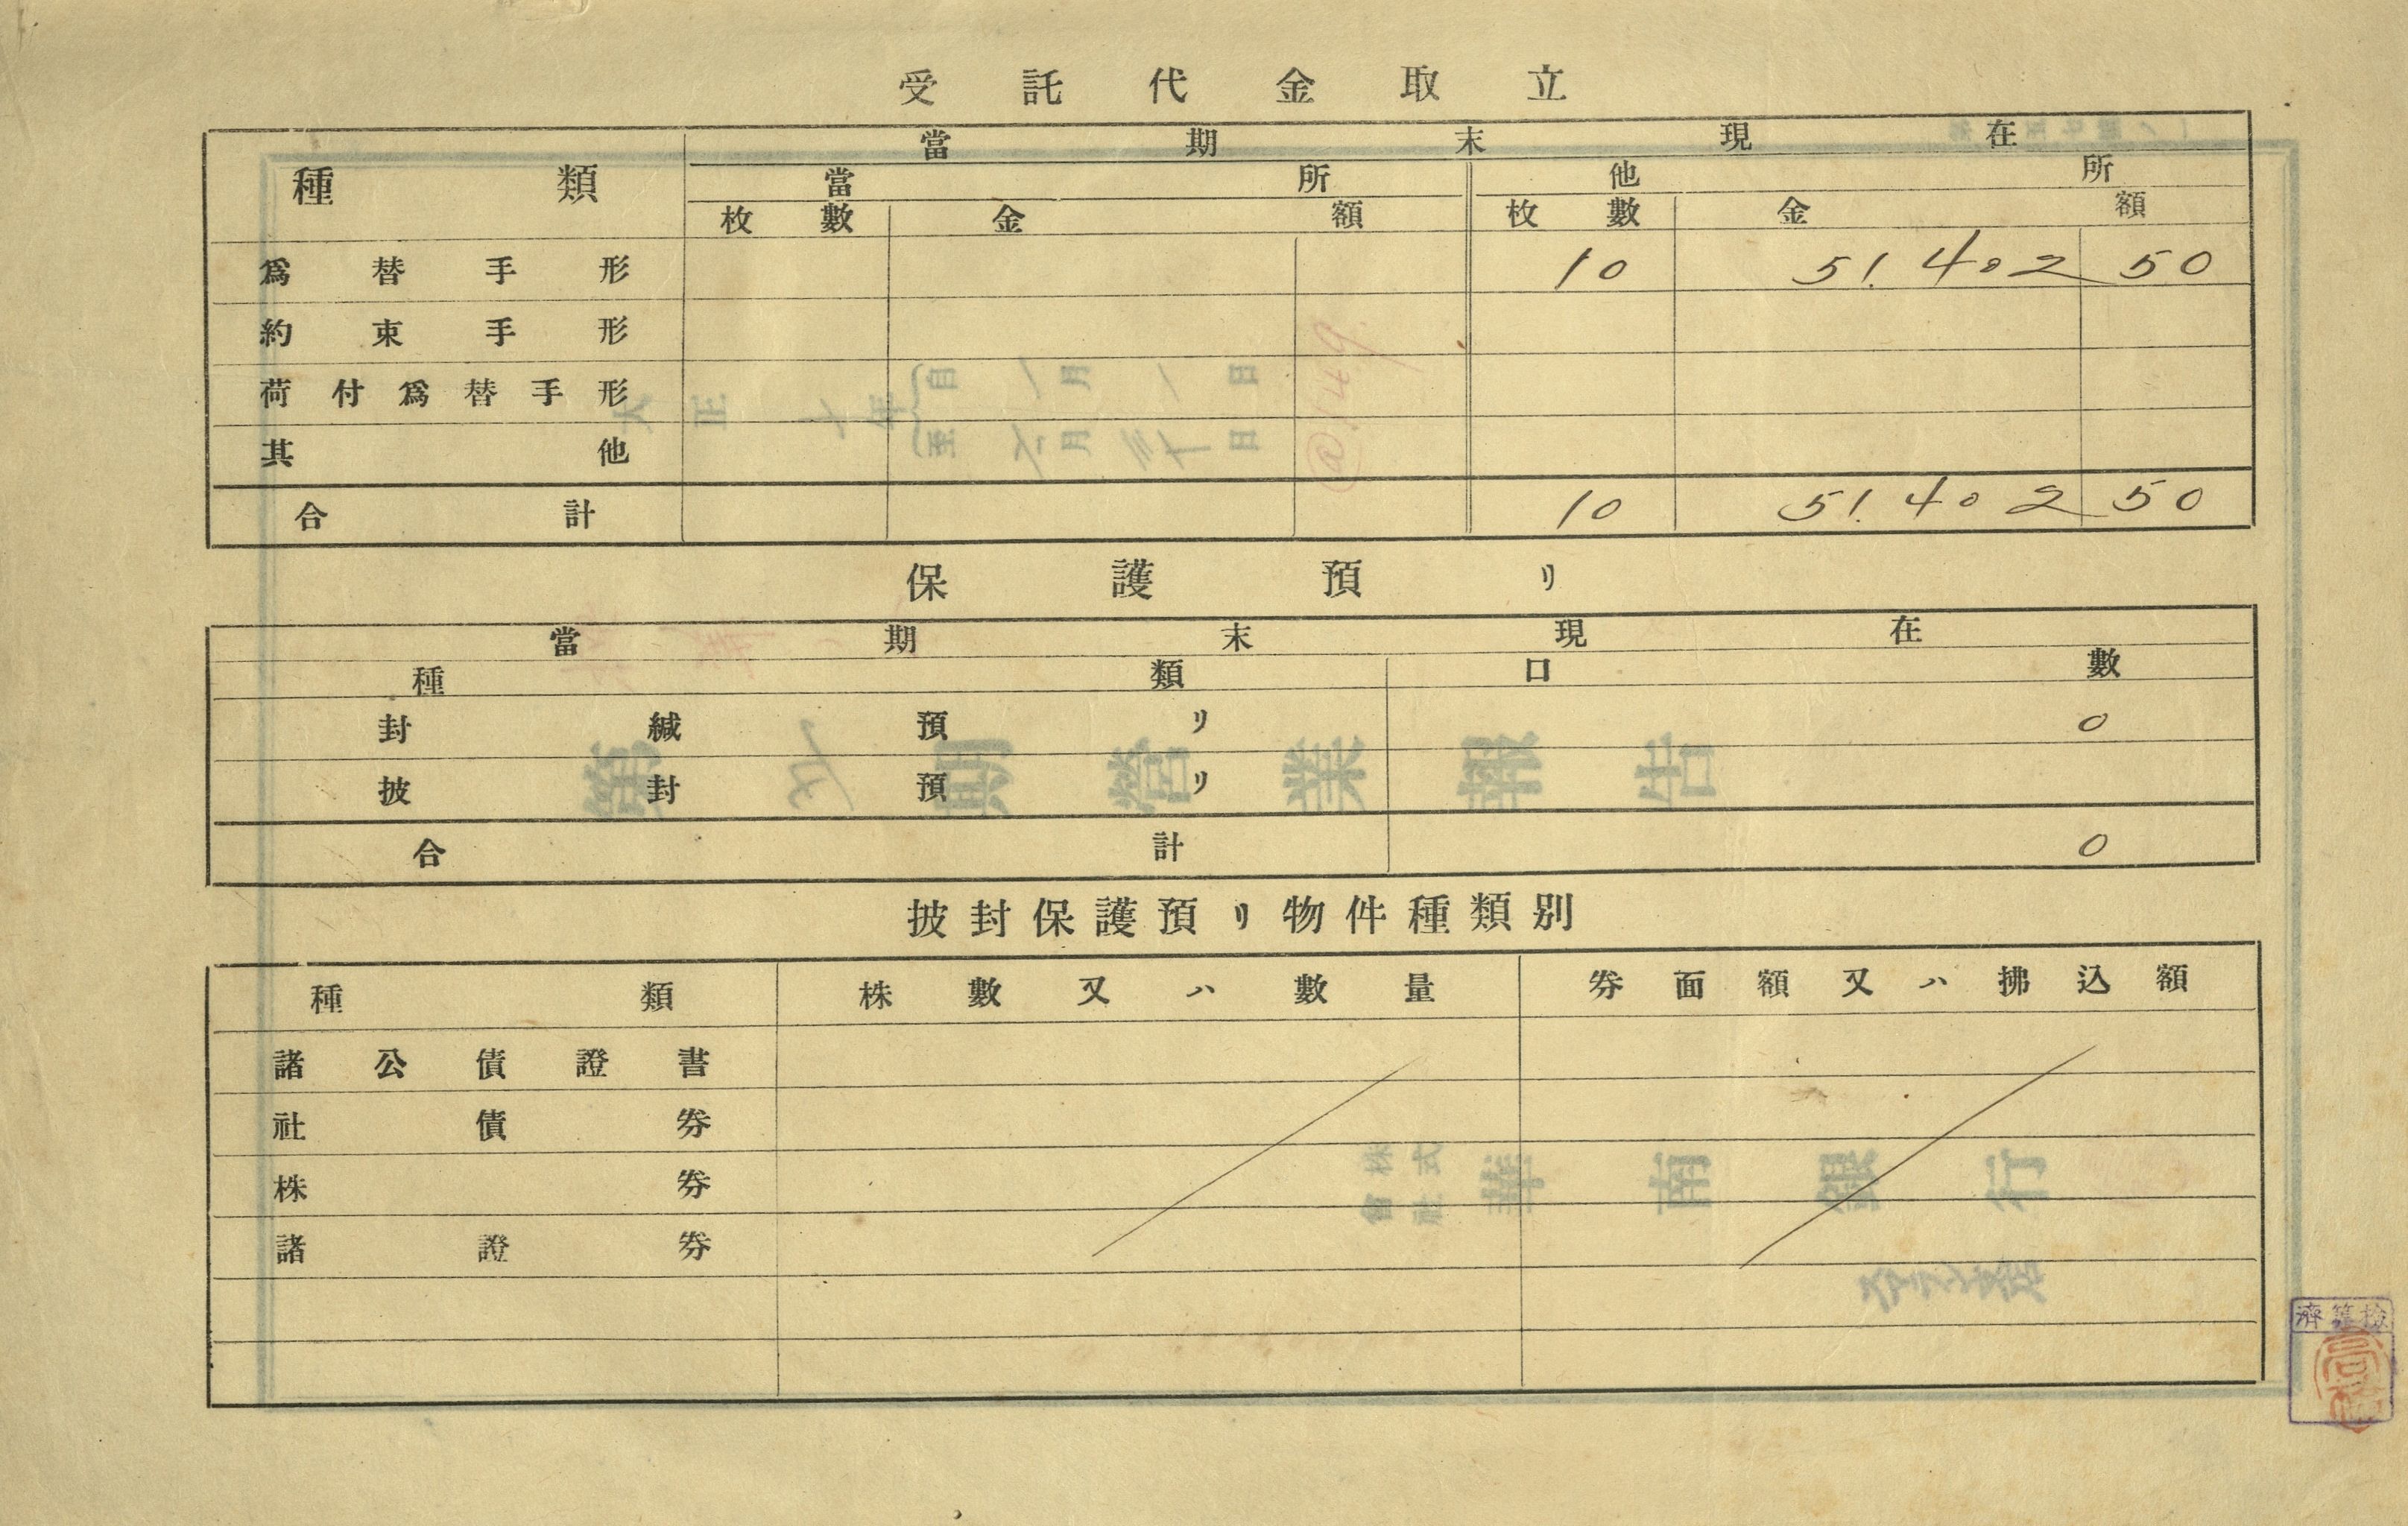 受託代金取立
種類 當期末現在
當所 他所
枚數 金額 枚數 金額
爲替手形 10 51.402 50
約束手形
荷付爲替手形
其他
合計 10 51.402 50
保護預リ
當期末現在
種類 口數
封緘預リ 0
披封預リ
合計 0
披封保護預リ物件種類別
種類 株數又ハ數量 券面額又ハ拂込額
諸公債證書
社債券
株券
諸證券
大正十年
自一月一日
至六月三十日
期營業報告
株式會社 華南銀行
檢算濟